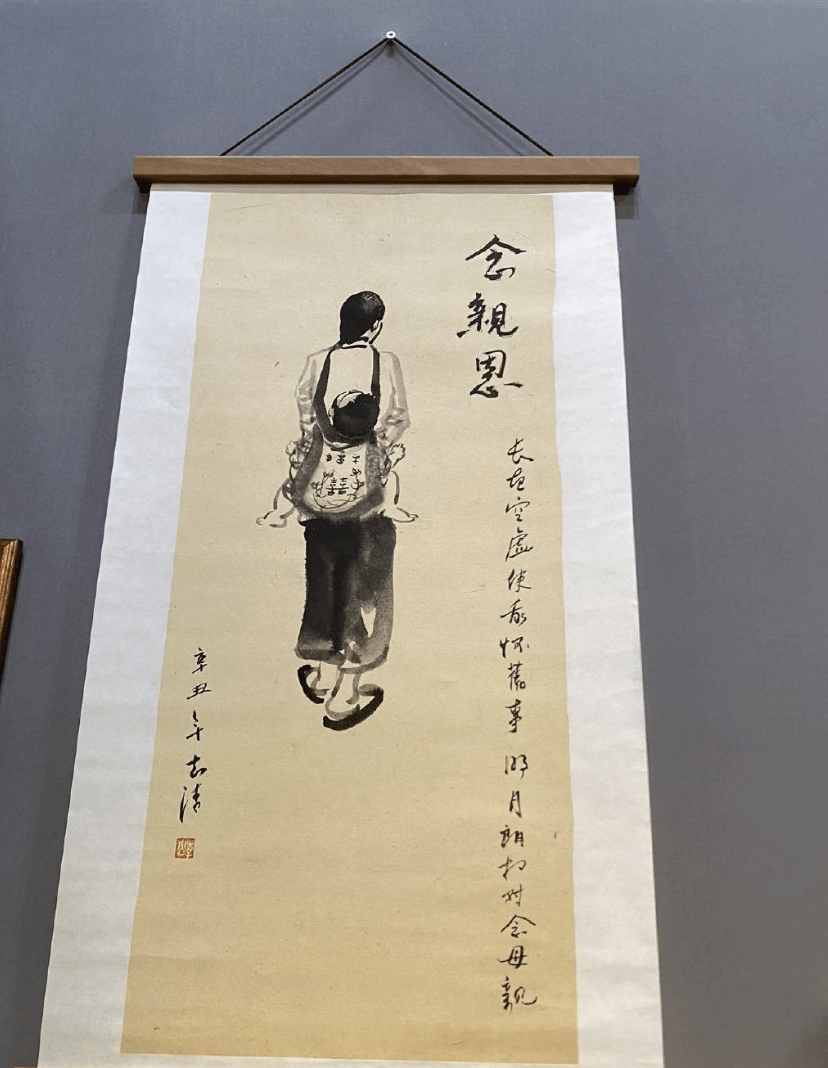 念親恩
长夜空虛使我怀舊事 明月朗相对念母親
辛丑年志清
囍